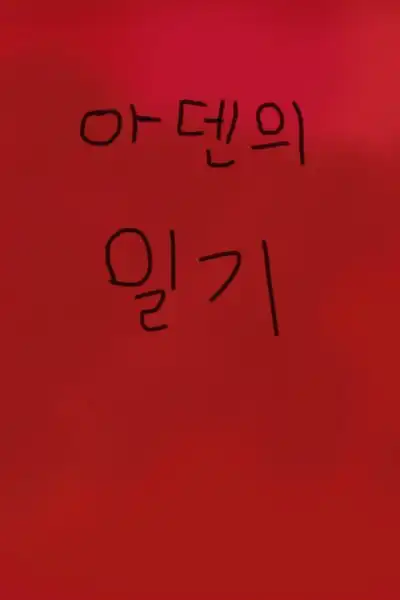 아덴의
일기